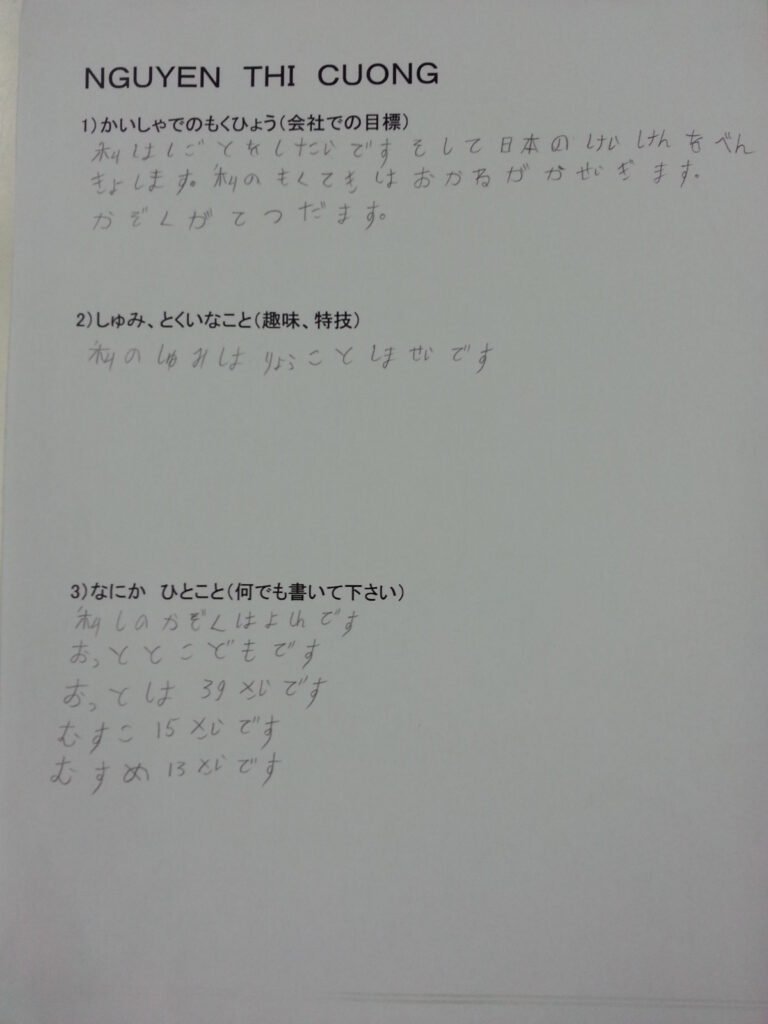 NGUYEN THI CUONG
1)かいしゃでのもくひょう(会社での目標)
私はしごとをしたいです そして 日本の けいけんをべん
きょします。私の もくてきは おかるが かせいぎます。
かぞくが てつだます。
2)しゅみ、とくいなこと(趣味、特技)
私の しゅみは りょうこと しませいです
3)なにか ひとこと(何でも書いて下さい)
私しの かぞくは よんです
おっと と こどもです
おっとは 39 さいです
むすこ 15 さいです
むすめ 13 さいです